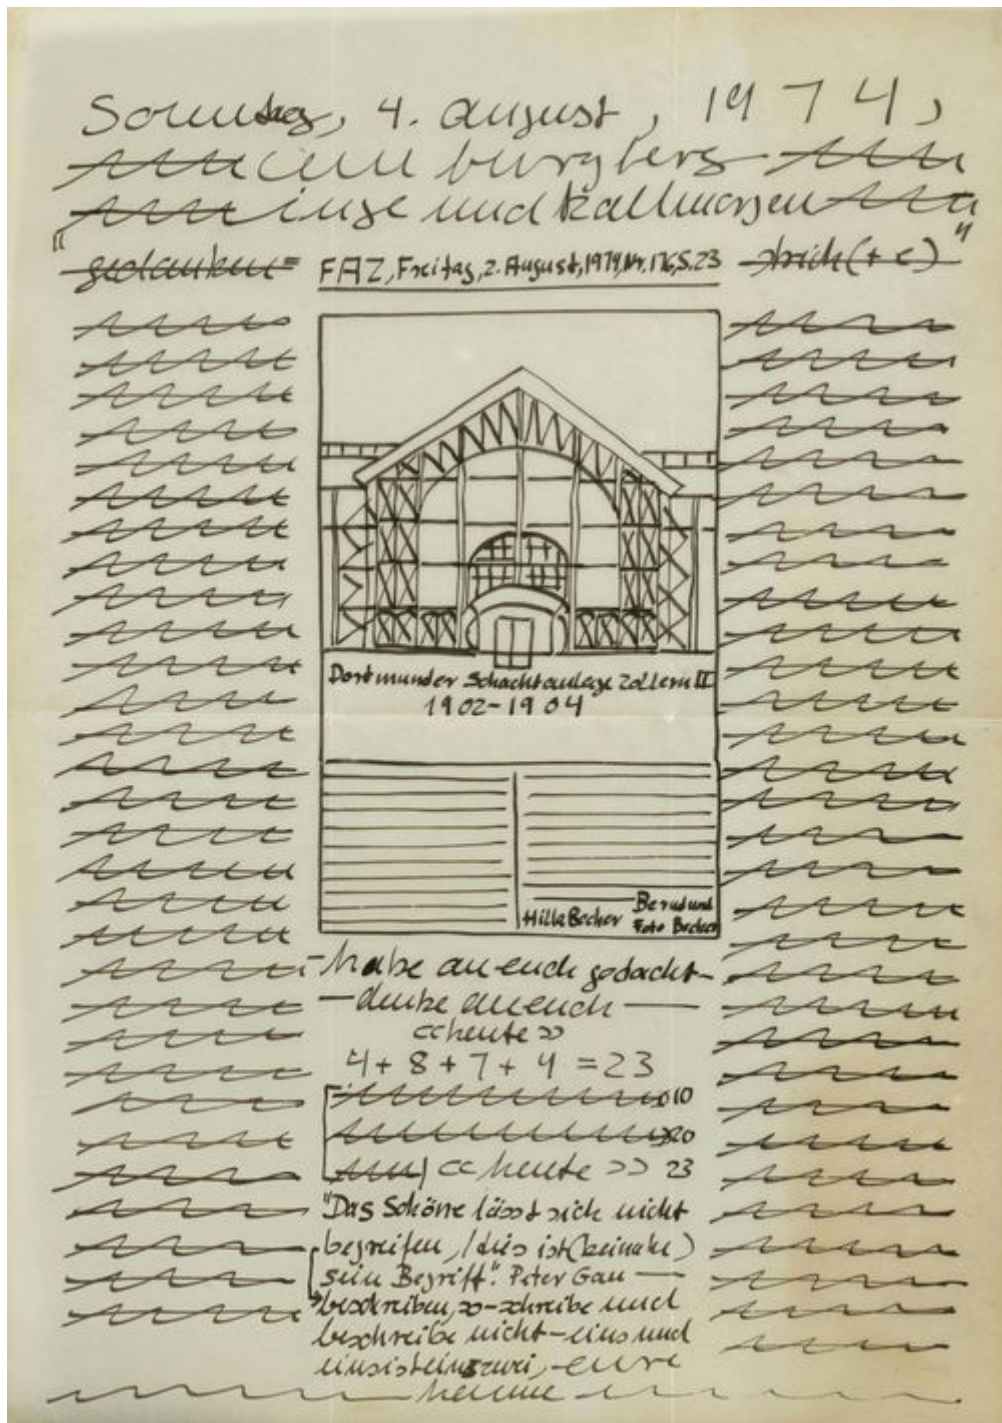 Sonntag, 4. august, 1974,
am burgberg
inge und kallmorgen
"gedanken= FAZ, Freitag, 2. August, 1974, Nr. 176, S. 23 strich (+e)"
Dortmunder Schachtanlage Zollern II
1902-1904
Hilla Becher Bernd und
Foto Becher
-habe an euch gedacht-
-denke an euch-
<<heute>>
4+8+7+4=23
10
20
<<heute>> 23
"Das Schöne lässt sich nicht
begreifen, / dies ist (beinahe)
sein Begriff". Peter Gan-
beschreiben, so-schreibe und
beschreibe nicht-eins und
eins ist eins zwei,-eure
hanne